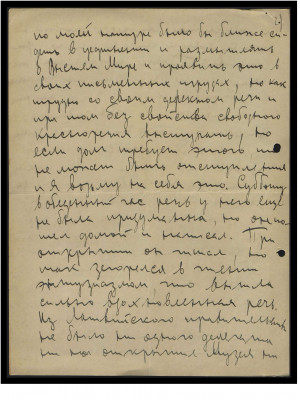 по моей натуре было бы ближе си-
деть в уединении и размышлять
о Высшем Мире и проявить это в
своих письменных трудах, но как
трудно со своим дефектом речи и
при том без свойства свободного
красноречия выступать, но
если долг требует этого то
не может быть отступления
и я возьму на себя это. Субботу
в обеденный час речь у него еще
не была придумана, но он по-
шел домой и написал. При
открытии он читал, но
так загорелся в чтении
энтузиазмом, что вышла
сильно вдохновленная речь.
Из Латвийского правительства
не было ни одного делегата
ни на открытии Музея ни